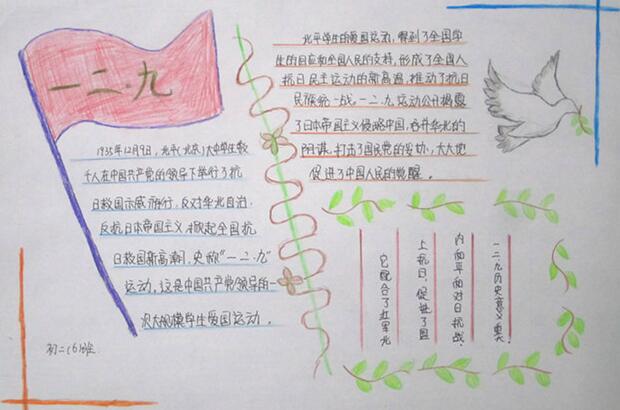 一二·九
1935年12月9日，北平(北京)大中学生数
千人在中国共产党的领导下举行了抗
日救国示威游行，反对华北自治，
反抗日本帝国主义，掀起全国抗
日救国新高潮，史称“一二·九”
运动，这是中国共产党领导的一
次大规模学生爱国运动。
初二(6)班
北平学生的爱国运动，得到了全国学
生的回应和全国人民的支持，形成了全国人
抗日民主运动的新高潮，推动了抗日
民族统一战，一二·九运动公开揭露
了日本帝国主义侵略中国，吞并华北的
阴谋，打击了国民党的妥协，大大地
促进了中国人民的觉醒。
一二九历史意义重大
内面平面对日抗战，
上抗日，促进了国
它配合了红军北